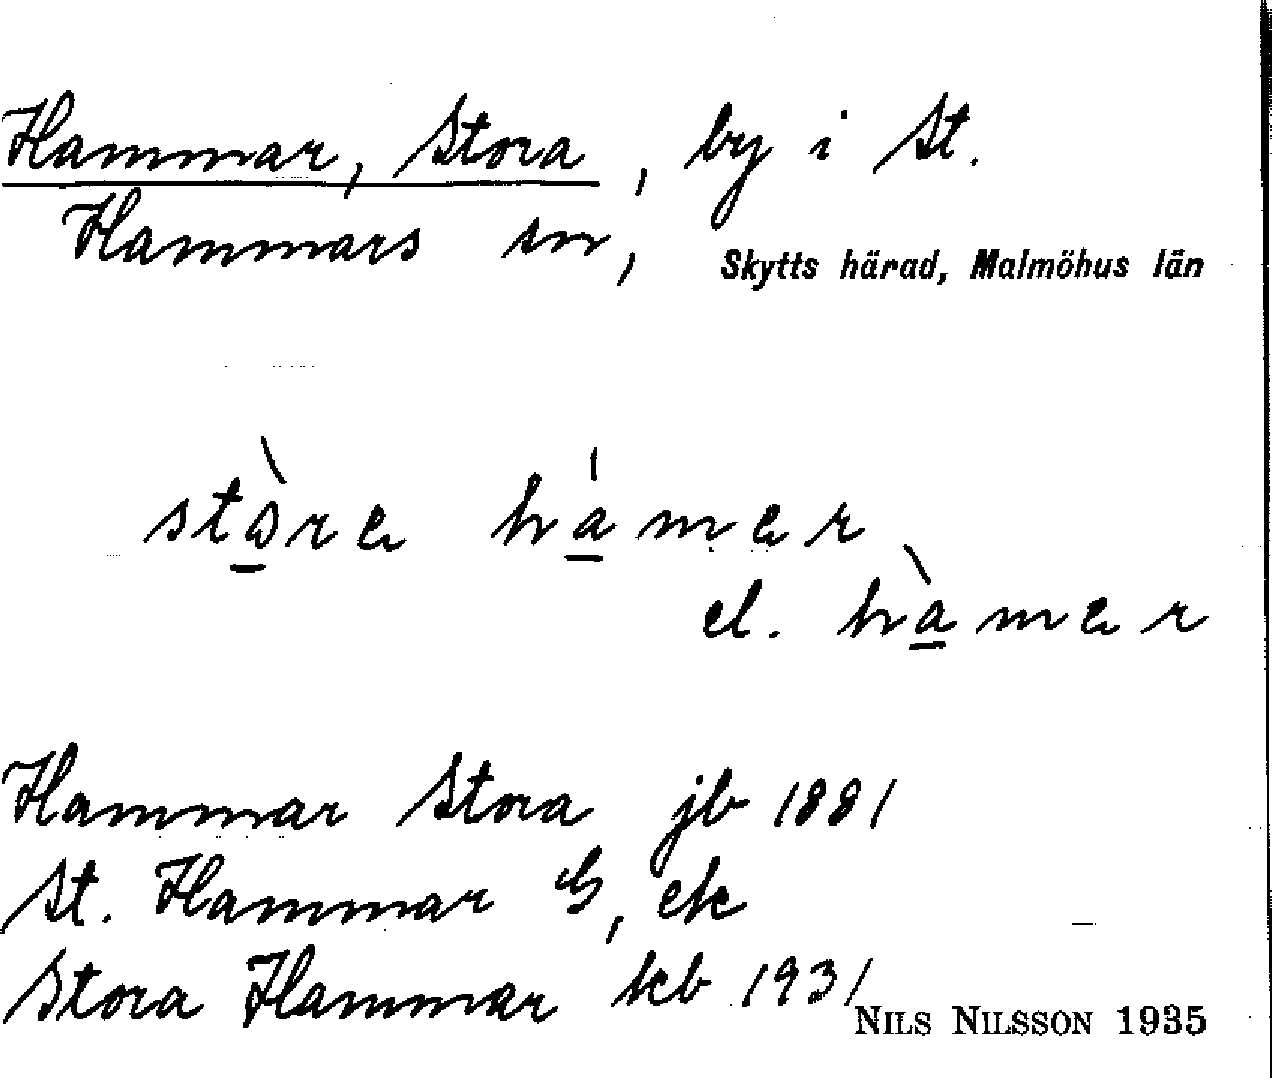 Hammar, Stora, by i St.
Hammars sn, Skytts härad, Malmöhus län
stòre hámer
el. hàmer
Hammar Stora jb 1881
St. Hammar G, ek
Stora Hammar tcb 1931
NILS NILSSON 1935